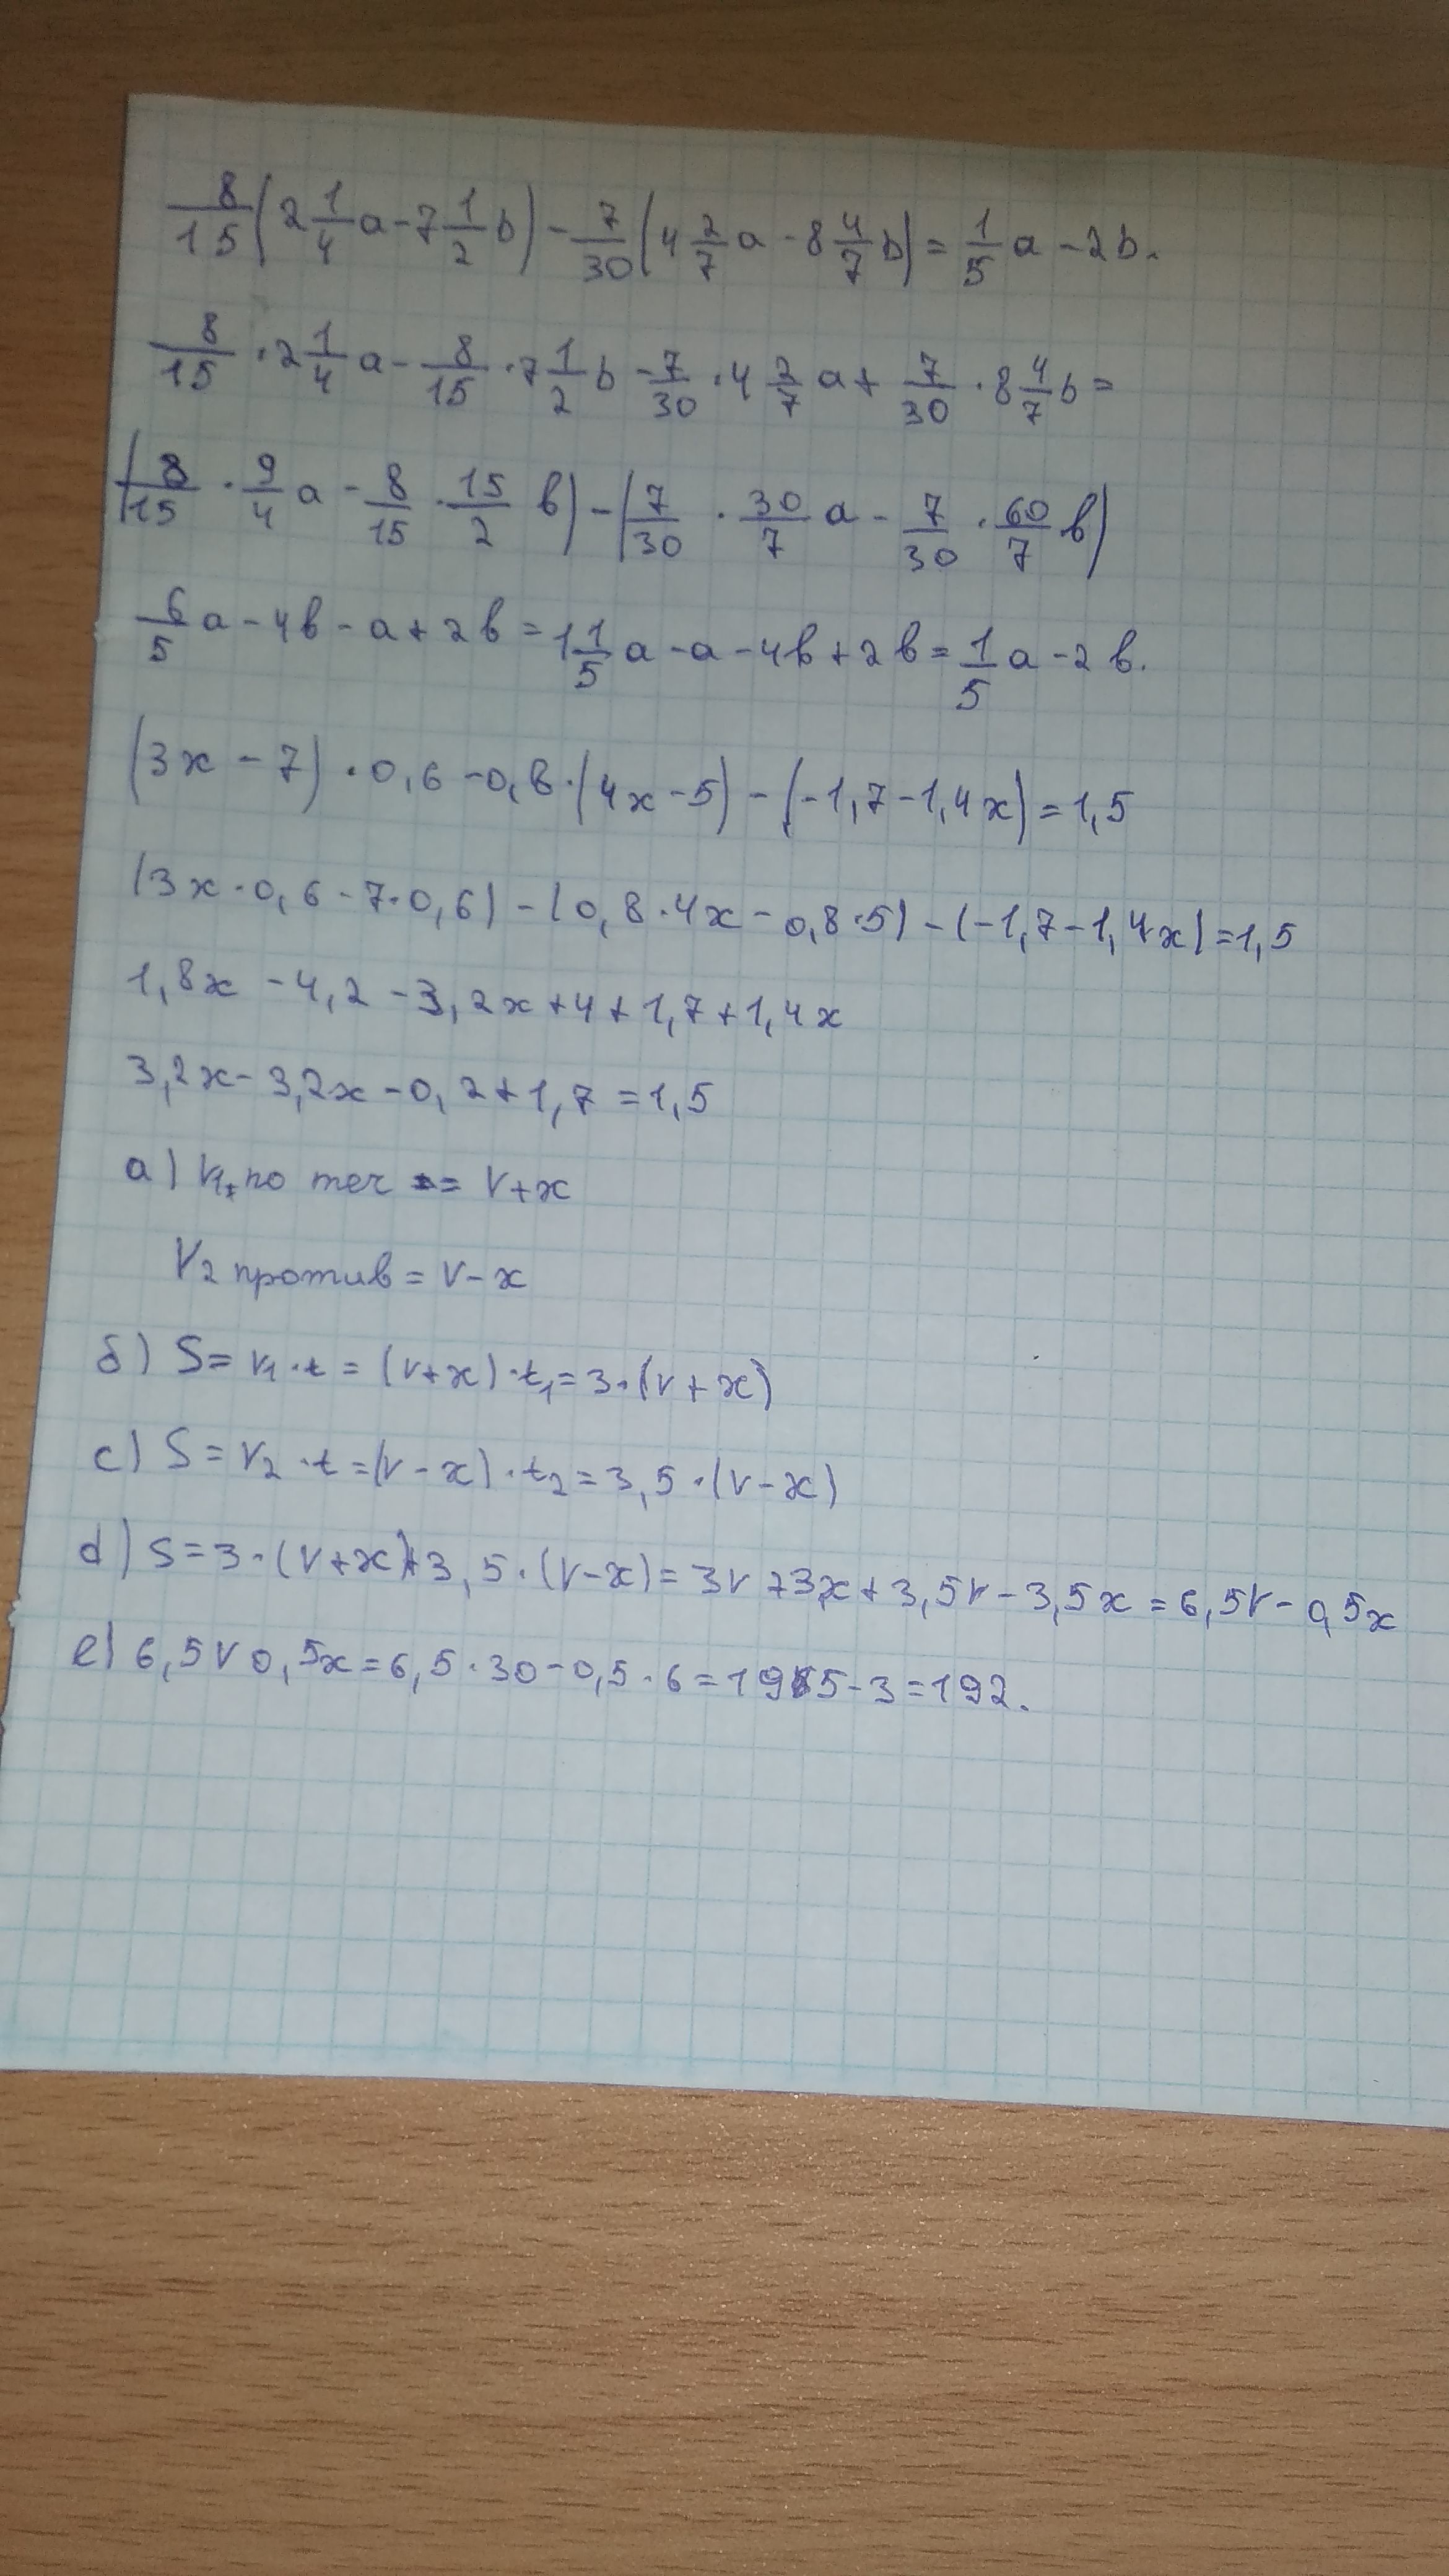 8/15(2 1/4 a - 7 1/2 b) - 7/30(4 2/7 a - 8 4/7 b) = 1/5 a - 2b.
8/15 · 2 1/4 a - 8/15 · 7 1/2 b - 7/30 · 4 2/7 a + 7/30 · 8 4/7 b =
(8/15 · 9/4 a - 8/15 · 15/2 b) - (7/30 · 30/7 a - 7/30 · 60/7 b)
6/5 a - 4b - a + 2b = 1 1/5 a - a - 4b + 2b = 1/5 a - 2b.
(3x - 7) · 0,6 - 0,8 · (4x - 5) - (-1,7 - 1,4x) = 1,5
(3x · 0,6 - 7 · 0,6) - (0,8 · 4x - 0,8 · 5) - (-1,7 - 1,4x) = 1,5
1,8x - 4,2 - 3,2x + 4 + 1,7 + 1,4x
3,2x - 3,2x - 0,2 + 1,7 = 1,5
a) V1 по теч = V + x
V2 против = V - x
б) S = V1 · t = (V + x) · t1 = 3 · (V + x)
c) S = V2 · t = (V - x) · t2 = 3,5 · (V - x)
d) S = 3 · (V + x) + 3,5 · (V - x) = 3V + 3x + 3,5V - 3,5x = 6,5V - 0,5x
e) 6,5V 0,5x = 6,5 · 30 - 0,5 · 6 = 195 - 3 = 192.